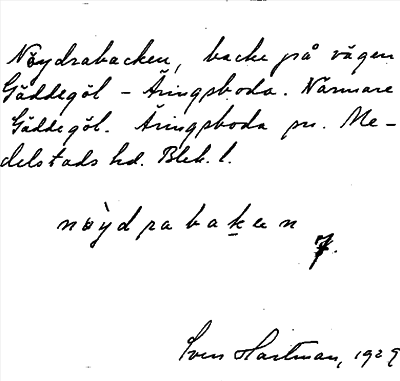 Nöydrabacken, backe på vägen
Gäddegöl - Åringsboda. Närmare
Gäddegöl. Åringsboda sn. Me-
delstads hd. Blek. l.
nöydrabaken
7.
Sven Hartman, 1929